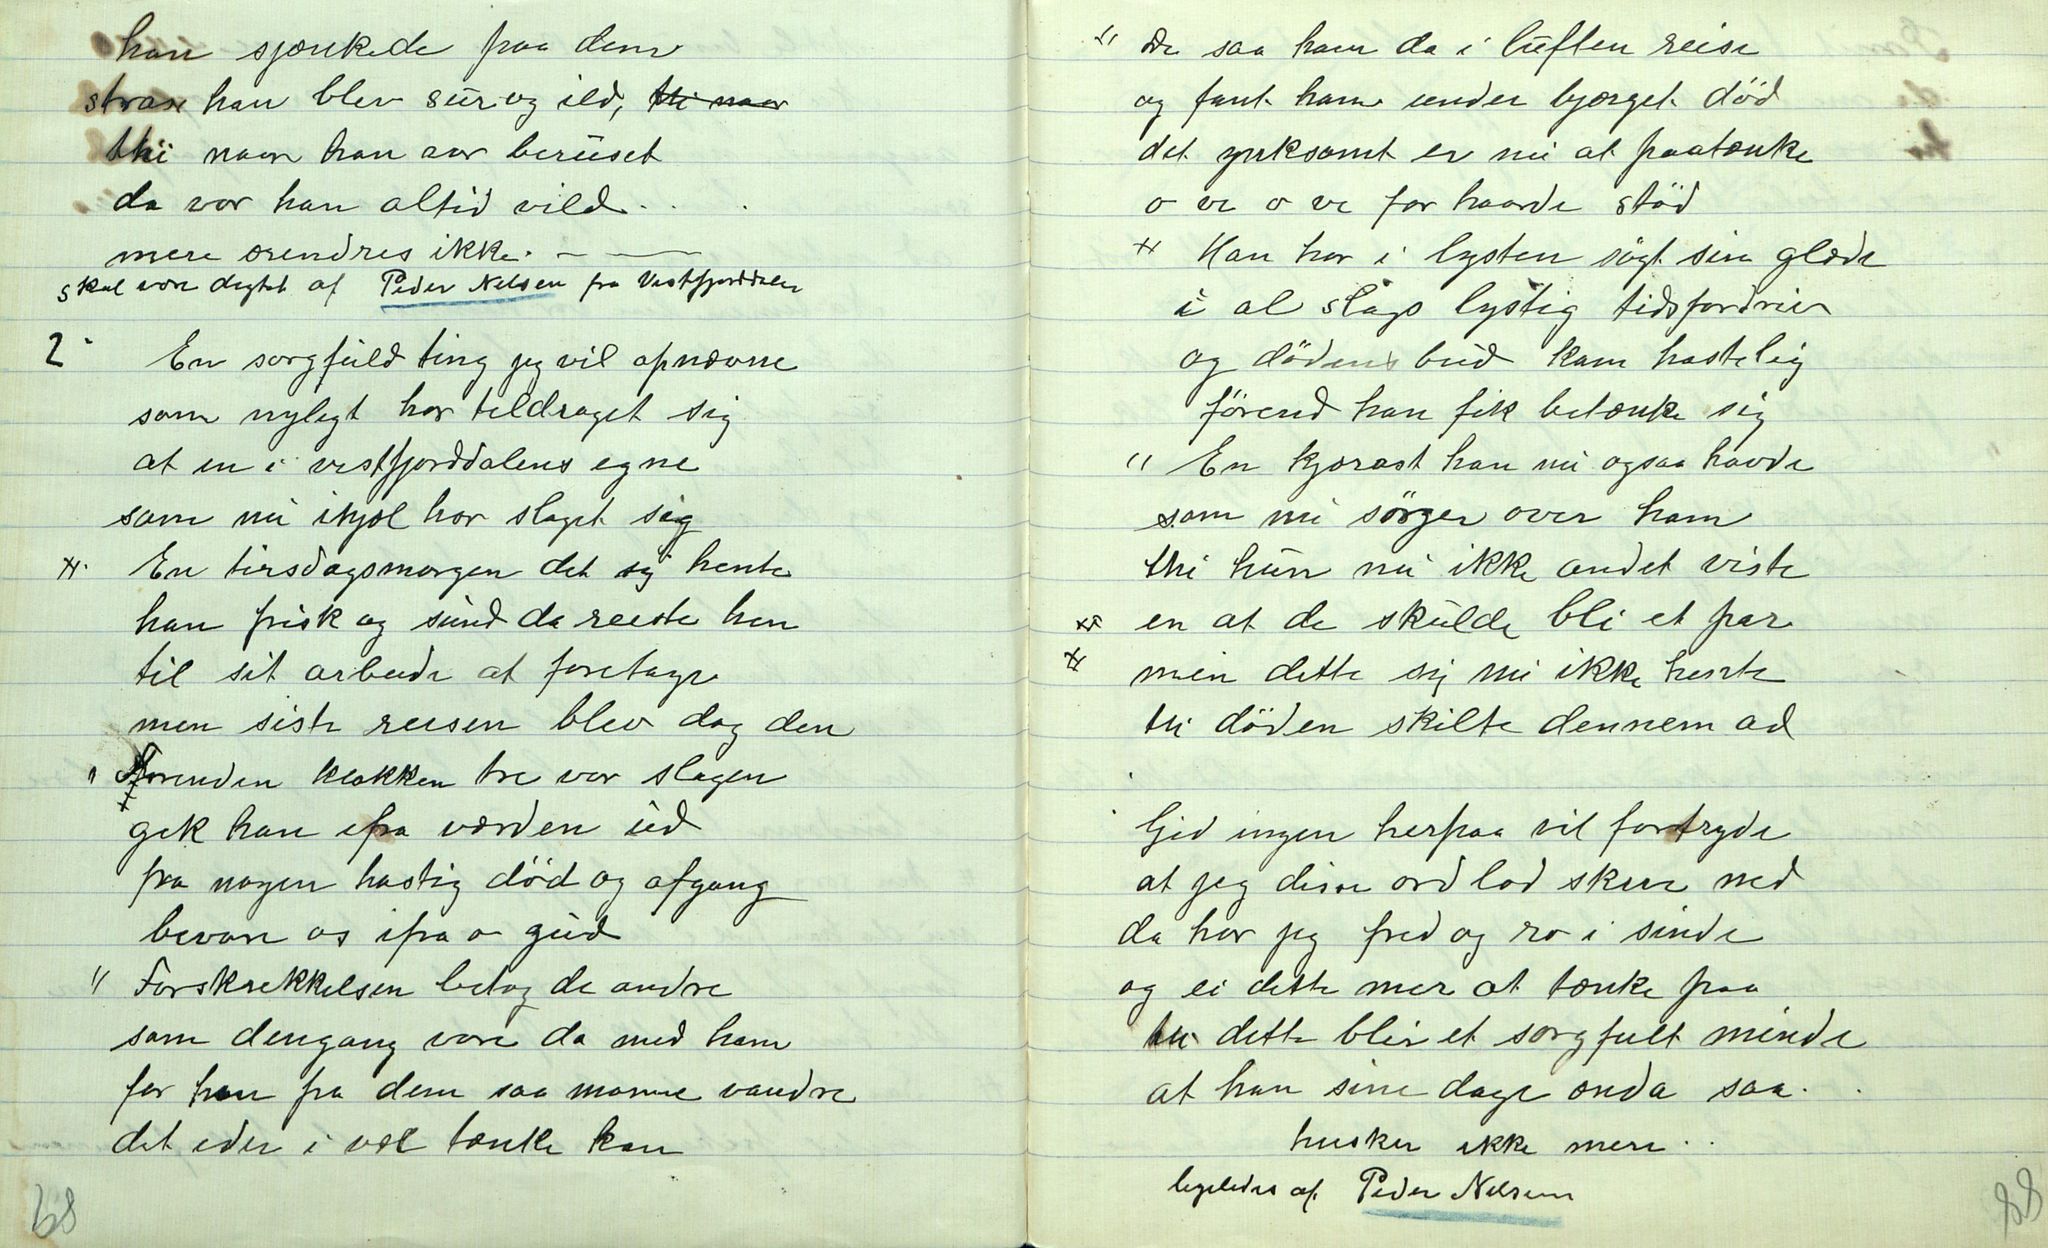 han sjænkede paa dem
strax han blev sur og ild, thi naar
thi naar han aar beruset
da var han altid vild . .
mere ærendres ikke. — —
skal være digtet af Peder Nelsen fra Vestfjorddalen
2. En sorgfuld ting jeg vil opnævne
som nyligt har tildraget sig
at en i vestfjorddalens egne
som nu ihjæl har slaget sig
En tirsdagsmorgen det sig hente
han frisk og sund da reiste hen
til sit arbeide at foretage
men siste reisen blev dog den
" Forenden klokken tre var slagen
gik han ifra værden ud
fra nogen hastig død og afgang
bevare os ifra o gud
" Forskrekkelsen betog de andre
som dengang vare da med ham
for han fra dem saa monne vandre
det eder i væl tænke kan
68
" De saa ham da i luften reise
og fant ham under bjærget død
det ynksomt er nu at paatænke
o ve o ve for haarde stød
Han har i lysten søgt sin glæde
i al slags lystig tidsfordriv
og dødens bud kam hastelig
førend han fik betænke sig
" En kjærast han nu ogsaa havde
som nu sørger over ham
thi hun nu ikke andet viste
en at de skulde bli et par
men dette sig nu ikke hente
thi døden skilte dennem ad
Gid ingen herpaa vil fortryde
at jeg disse ord lod skrive ned
da har jeg fred og ro i sinde
og ei dette mer at tænke paa
thi dette blir et sorgfult minde
at han sine dage enda saa.
husker ikke mere . .
ligeledes af Peder Nelsen